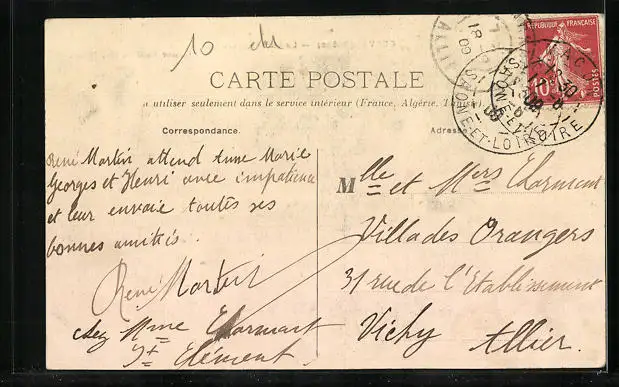 10
RÉPUBLIQUE FRANÇAISE
POSTES
10
CARTE POSTALE
à utiliser seulement dans le service intérieur (France, Algérie, Tunisie).
Correspondance.
Adresse
SAÔNE-ET-LOIRE
René Martin attend Anne Marie
Georges et Henri avec impatience
et leur envoie toutes ses
bonnes amitiés.
René Martin
chez Mme Charmant
St Clément.
Mlle et Mers Charmant
Villa des Orangers
31 rue de l'Etablissement
Vichy Allier.